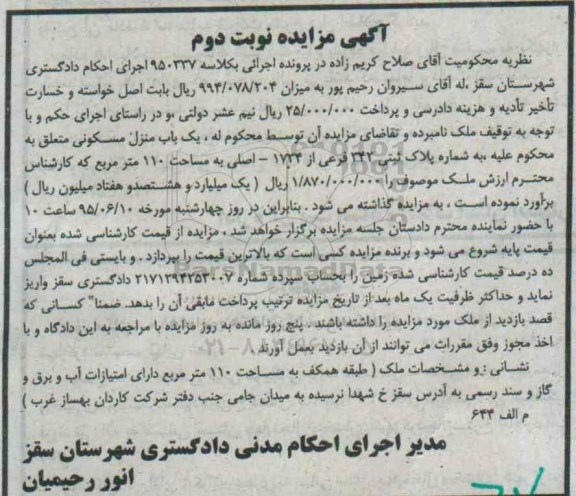 آگهی مزایده نوبت دوم
نظریه محکومیت آقای صلاح کریم زاده در پرونده اجرائی بکلاسه ۹۵۰۳۳۷ اجرای احکام دادگستری
شهرستان سقز ،له آقای سیروان رحیم پور به میزان ۹۹۴/۰۷۸/۲۰۴ ریال بابت اصل خواسته و خسارت
تأخیر تأدیه و هزینه دادرسی و پرداخت ۲۵/۰۰۰/۰۰۰ ریال نیم عشر دولتی ،و در راستای اجرای حکم و با
توجه به توقیف ملک نامبرده و تقاضای مزایده آن توسط محکوم له ، یک باب منزل مسکونی متعلق به
محکوم علیه ،به شماره پلاک ثبتی ۳۴۲ فرعی از ۱۷۲۴ – اصلی به مساحت ۱۱۰ متر مربع که کارشناس
محترم ارزش ملک موصوف را ۱/۸۷۰/۰۰۰/۰۰۰ ریال ( یک میلیارد و هشتصدو هفتاد میلیون ریال )
برآورد نموده است ، به مزایده گذاشته می شود . بنابراین در روز چهارشنبه مورخه ۹۵/۰۶/۱۰ ساعت ۱۰
با حضور نماینده محترم دادستان جلسه مزایده برگزار خواهد شد . مزایده از قیمت کارشناسی شده بعنوان
قیمت پایه شروع می شود و برنده مزایده کسی است که بالاترین قیمت را بپردازد . و بایستی فی المجلس
ده درصد قیمت کارشناسی شده زمین را بحساب سپرده شماره ۲۱۷۱۲۹۴۲۵۳۰۰۷ دادگستری سقز واریز
نماید و حداکثر ظرفیت یک ماه بعد از تاریخ مزایده ترتیب پرداخت مابقی آن را بدهد. ضمنا" کسانی که
قصد بازدید از ملک مورد مزایده را داشته باشند . پنج روز مانده به روز مزایده با مراجعه به این دادگاه و با
اخذ مجوز وفق مقررات می توانند از آن بازدید بعمل آورند
نشانی :و مشخصات ملک ( طبقه همکف به مساحت ۱۱۰ متر مربع دارای امتیازات آب و برق و
گاز و سند رسمی به آدرس سقز خ شهدا نرسیده به میدان جامی جنب دفتر شرکت کاردان بهساز غرب )
م الف ۶۴۴
مدیر اجرای احکام مدنی دادگستری شهرستان سقز
انور رحیمیان